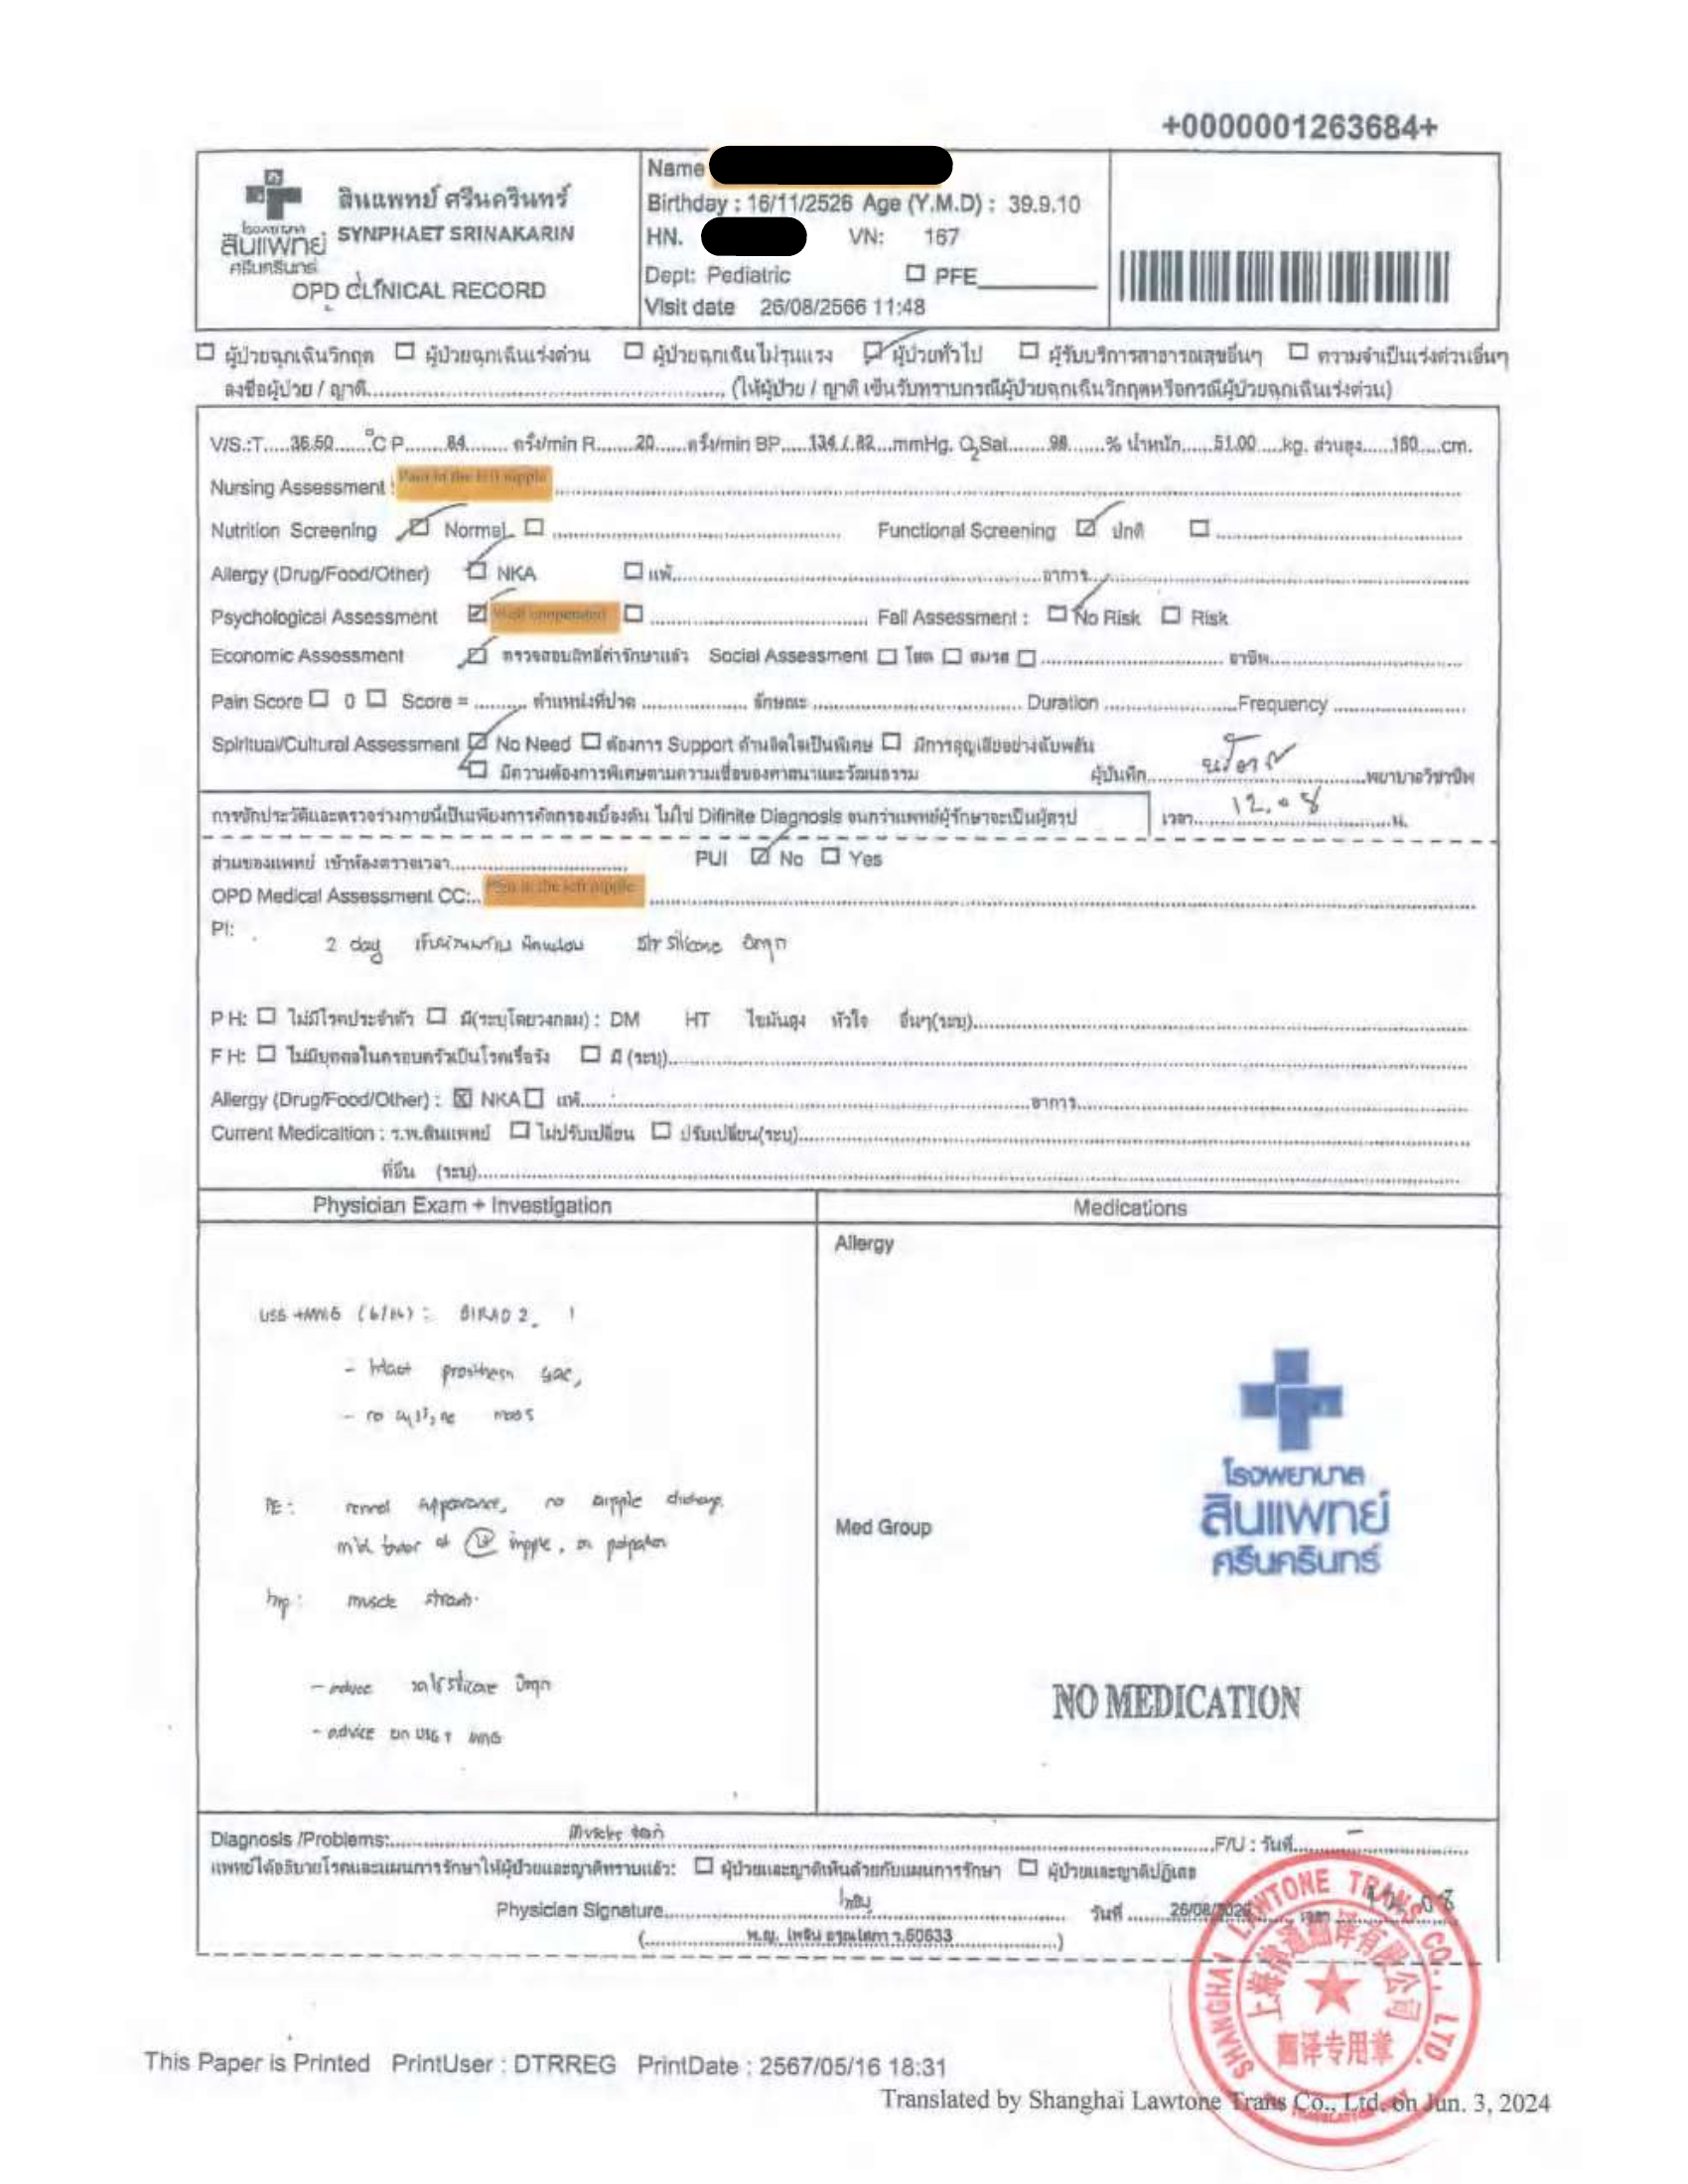 +0000001263684+
สินแพทย์ ศรีนครินทร์
SYNPHAET SRINAKARIN
โรงพยาบาล
สินแพทย์
ศรีนครินทร์
OPD CLINICAL RECORD
Name
Birthday : 16/11/2526 Age (Y.M.D) : 39.9.10
HN. VN: 167
Dept: Pediatric ☐ PFE
Visit date 26/08/2566 11:48
☐ ผู้ป่วยฉุกเฉินวิกฤต ☐ ผู้ป่วยฉุกเฉินเร่งด่วน ☐ ผู้ป่วยฉุกเฉินไม่รุนแรง ☑ ผู้ป่วยทั่วไป ☐ ผู้รับบริการสาธารณสุขอื่นๆ ☐ ความจำเป็นเร่งด่วนอื่นๆ
ลงชื่อผู้ป่วย / ญาติ (ให้ผู้ป่วย / ญาติ เซ็นรับทราบกรณีผู้ป่วยฉุกเฉินวิกฤตหรือกรณีผู้ป่วยฉุกเฉินเร่งด่วน)
V/S.:T.....36.50......°C P.......84....... ครั้ง/min R.......20......ครั้ง/min BP.....134./.82...mmHg. O2Sat.......98.......% น้ำหนัก......51.00 ....kg. ส่วนสูง......160....cm.
Nursing Assessment : Pain in the left nipple
Nutrition Screening ☑ Normal ☐ Functional Screening ☑ ปกติ ☐
Allergy (Drug/Food/Other) ☑ NKA ☐ แพ้ อาการ
Psychological Assessment ☑ Well cooperated ☐ Fall Assessment : ☑ No Risk ☐ Risk
Economic Assessment ☑ ตรวจสอบสิทธิ์ค่ารักษาแล้ว Social Assessment ☐ โสด ☐ สมรส ☐ อาชีพ
Pain Score ☐ 0 ☐ Score = ตำแหน่งที่ปวด ลักษณะ Duration Frequency
Spiritual/Cultural Assessment ☑ No Need ☐ ต้องการ Support ด้านจิตใจเป็นพิเศษ ☐ มีการสูญเสียอย่างฉับพลัน
☐ มีความต้องการพิเศษตามความเชื่อของศาสนาและวัฒนธรรม ผู้บันทึก พยาบาลวิชาชีพ
การซักประวัติและตรวจร่างกายนี้เป็นเพียงการคัดกรองเบื้องต้น ไม่ใช่ Difinite Diagnosis จนกว่าแพทย์ผู้รักษาจะเป็นผู้สรุป
เวลา 12.08 น.
ส่วนของแพทย์ เข้าห้องตรวจเวลา PUI ☑ No ☐ Yes
OPD Medical Assessment CC:.. Pain in the left nipple
PI: 2 day silicone
P H: ☐ ไม่มีโรคประจำตัว ☐ มี(ระบุโดยวงกลม) : DM HT ไขมันสูง หัวใจ อื่นๆ(ระบุ)
F H: ☐ ไม่มีบุคคลในครอบครัวเป็นโรคเรื้อรัง ☐ มี (ระบุ)
Allergy (Drug/Food/Other) : ☒ NKA ☐ แพ้ อาการ
Current Medicaltion : ร.พ.สินแพทย์ ☐ ไม่ปรับเปลี่ยน ☐ ปรับเปลี่ยน(ระบุ)
ที่อื่น (ระบุ)
Physician Exam + Investigation
Medications
Allergy
BIRAD 2
- intact prosthesis
- no mass
PE: appearance, no nipple
nipple, on palpation
Imp: muscle strain
silicone
- advice on
Med Group
โรงพยาบาล
สินแพทย์
ศรีนครินทร์
NO MEDICATION
Diagnosis /Problems: muscle F/U : วันที่ –
แพทย์ได้อธิบายโรคและแผนการรักษาให้ผู้ป่วยและญาติทราบแล้ว: ☐ ผู้ป่วยและญาติเห็นด้วยกับแผนการรักษา ☐ ผู้ป่วยและญาติปฏิเสธ
Physician Signature วันที่ เวลา
This Paper is Printed PrintUser : DTRREG PrintDate : 2567/05/16 18:31
Translated by Shanghai Lawtone Trans Co., Ltd. on Jun. 3, 2024
SHANGHAI LAWTONE TRANS CO., LTD.
翻译专用章